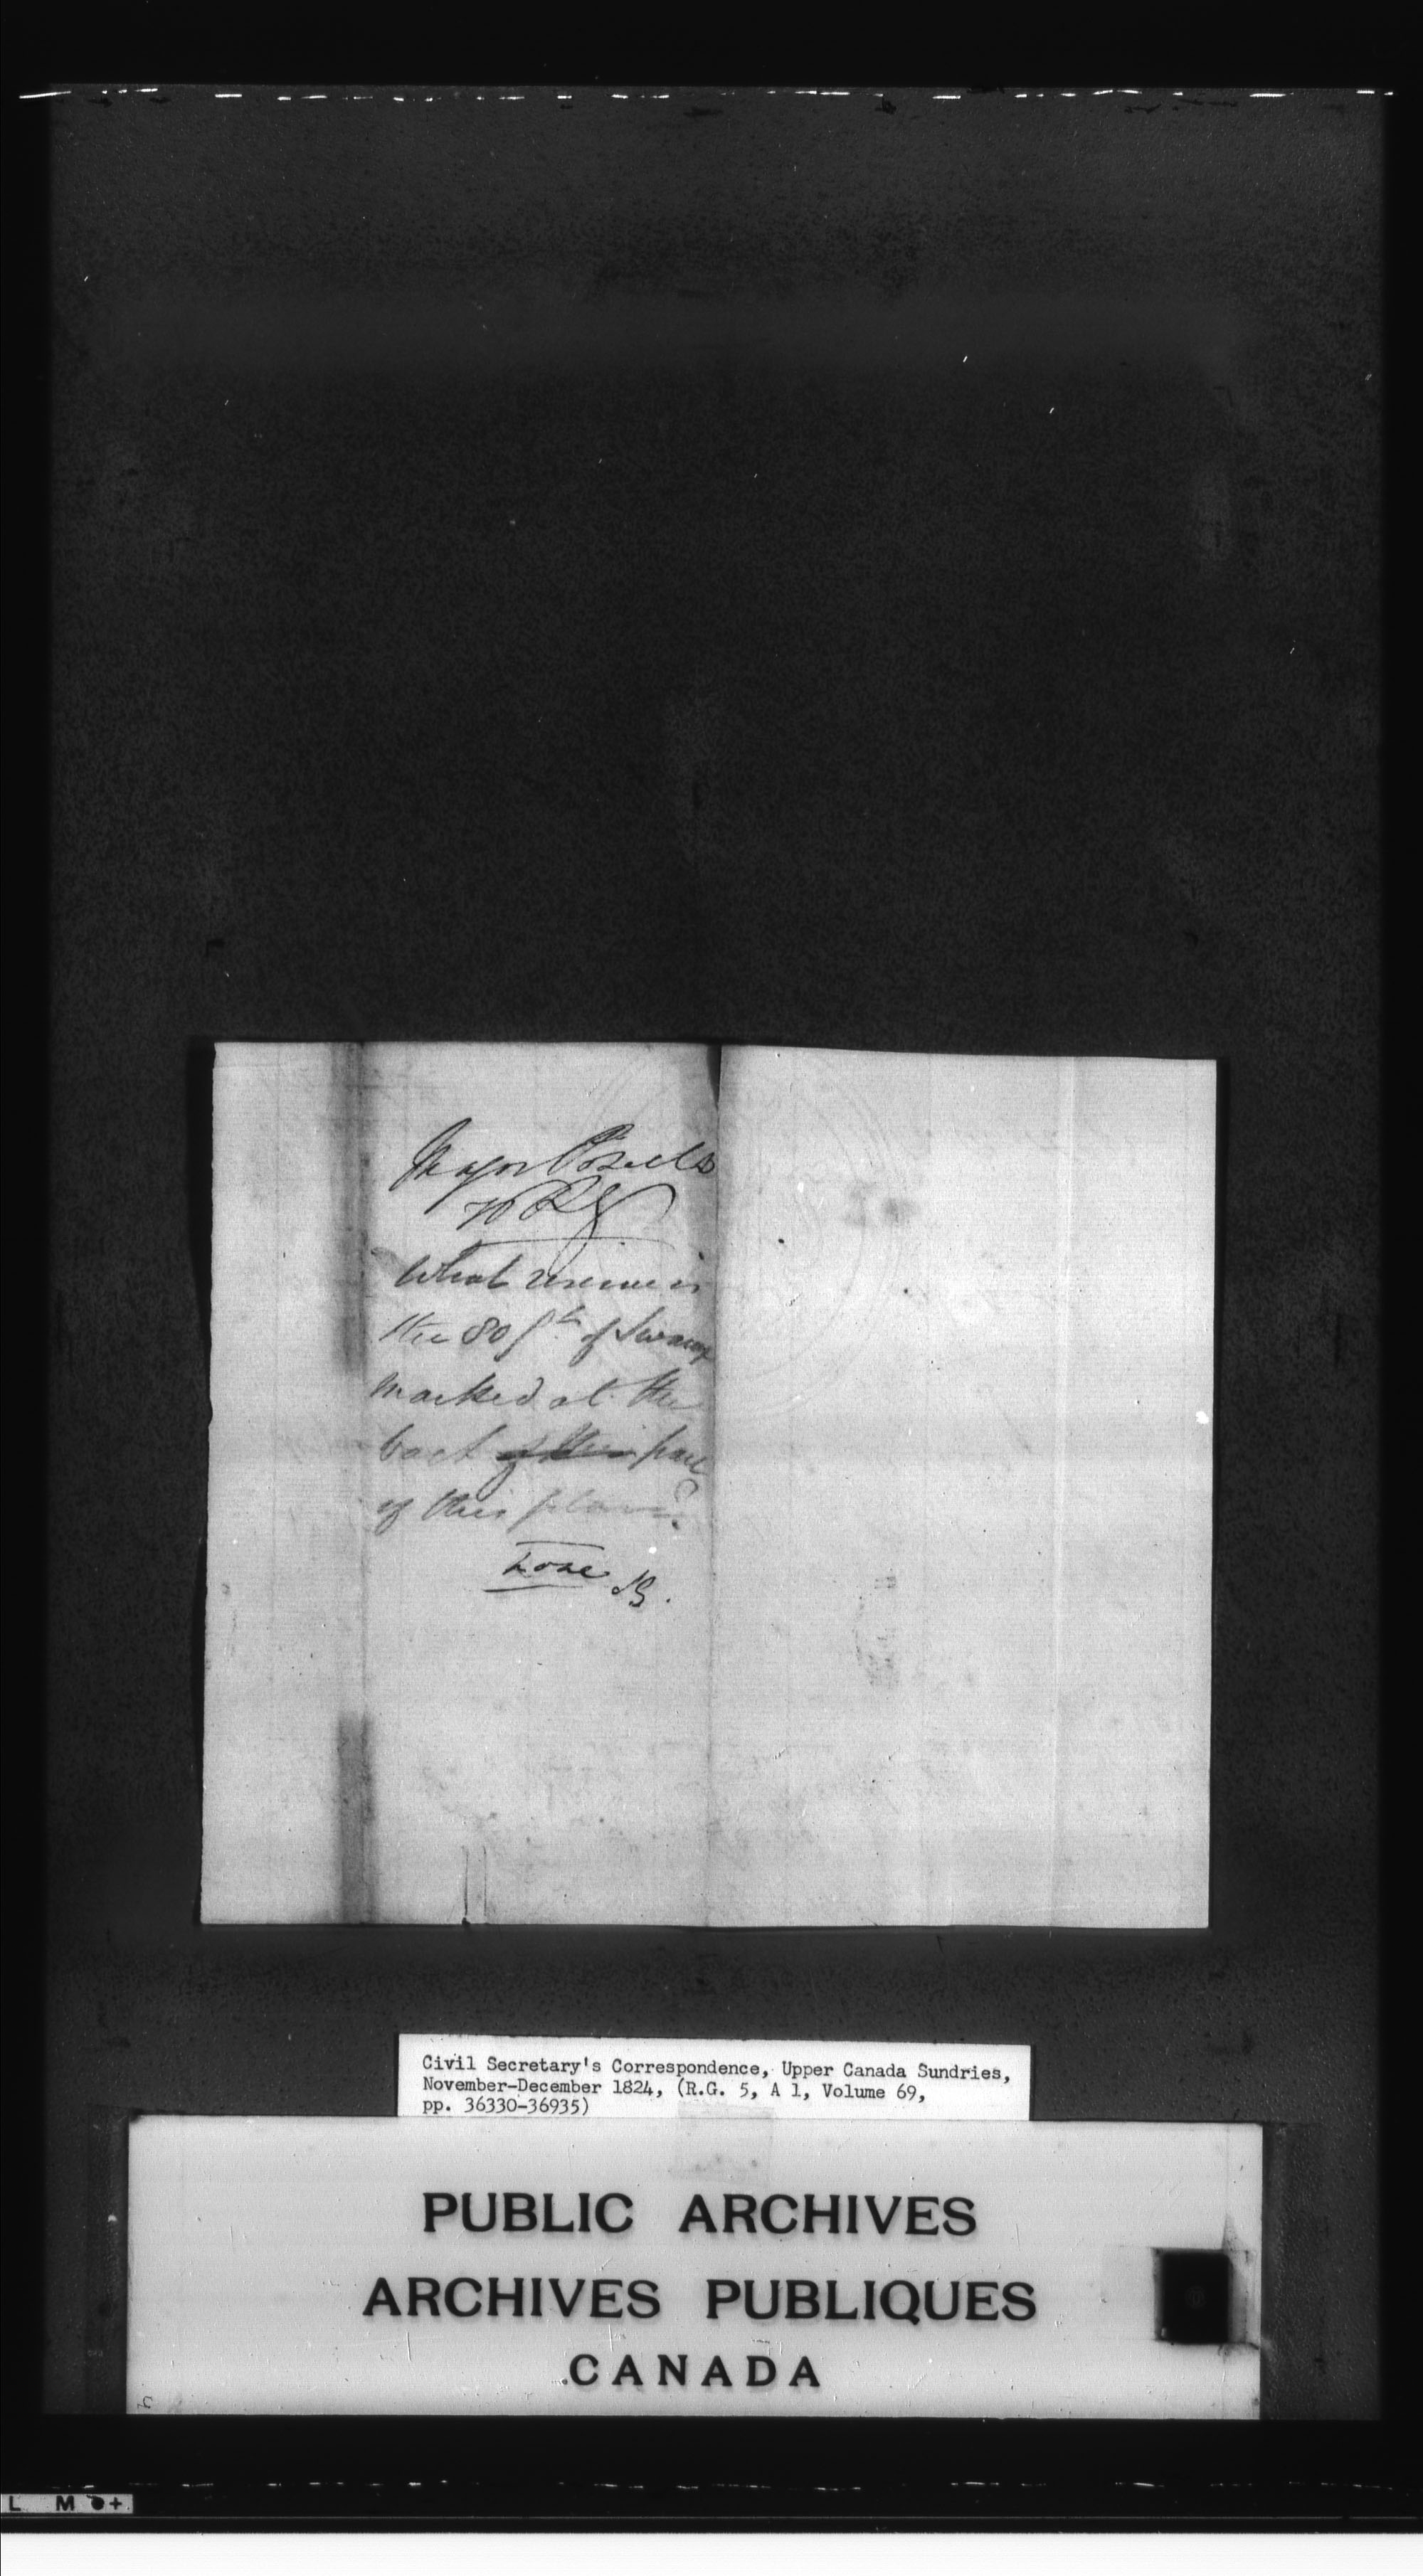 Major
What
the 80 ft of Swamp
marked at the
back of this part
of this plan?
none
JB.
Civil Secretary's Correspondence, Upper Canada Sundries,
November-December 1824, (R.G. 5, A 1, Volume 69,
pp. 36330-36935)
PUBLIC ARCHIVES
ARCHIVES PUBLIQUES
CANADA
L M